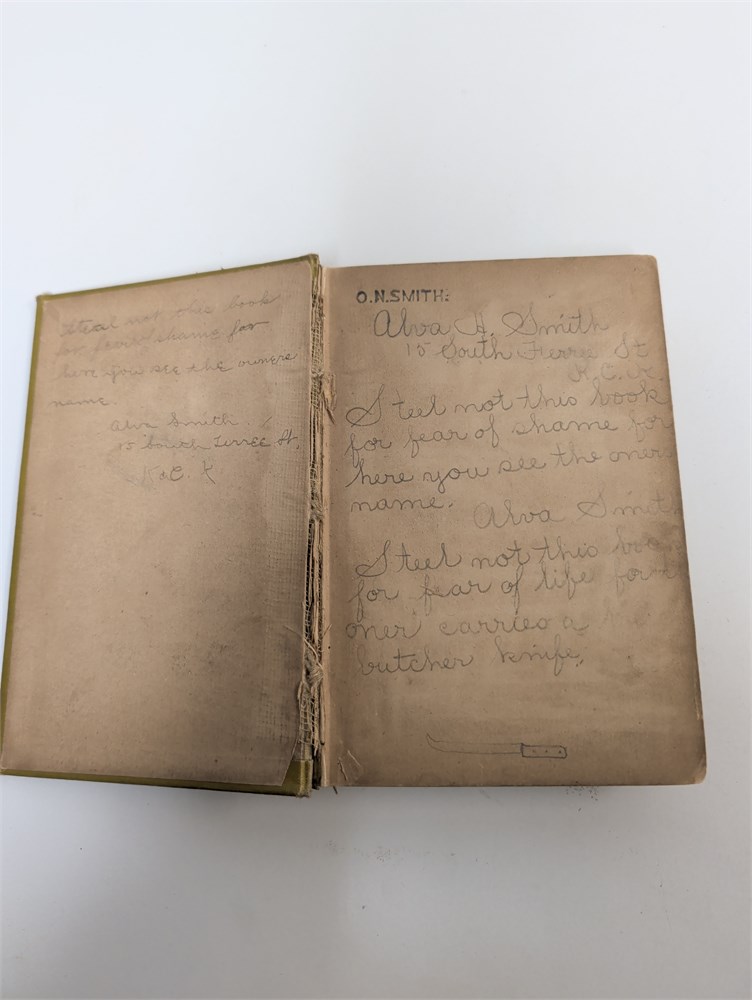 Steal not this book
for fear of shame for
here you see the owners
name.
Alva Smith.
15 South Ferree St.
K. C. K
O.N.SMITH:
Alva H. Smith
15 South Ferree St
K. C. K.
Steel not this book
for fear of shame for
here you see the oners
name.
Alva Smith
Steel not this
for fear of life for
oner carries a
butcher knife.